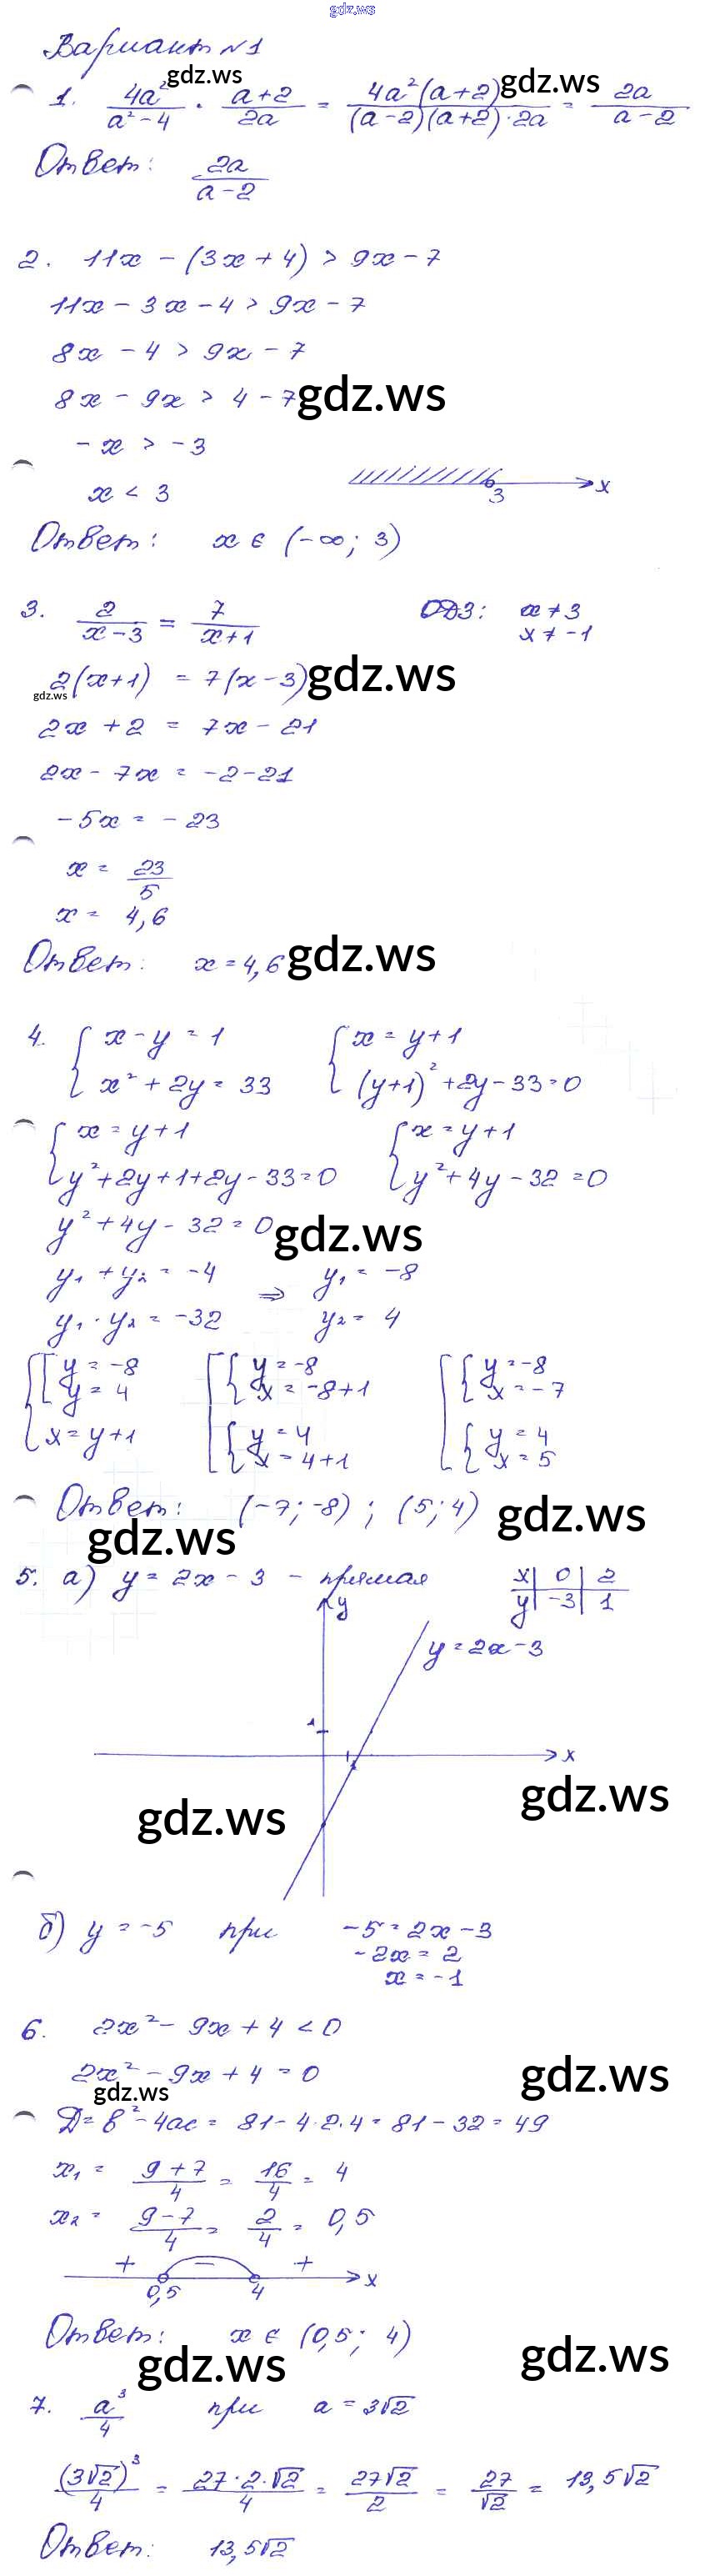 gdz.ws
Вариант №1
gdz.ws
gdz.ws
1. 4a²/(a²-4) · (a+2)/2a = 4a²(a+2)/((a-2)(a+2)·2a) = 2a/(a-2)
Ответ: 2a/(a-2)
2. 11x - (3x + 4) > 9x - 7
11x - 3x - 4 > 9x - 7
8x - 4 > 9x - 7
8x - 9x > 4 - 7
gdz.ws
-x > -3
x < 3
3 x
Ответ: x ∈ (-∞; 3)
3. 2/(x-3) = 7/(x+1) ОДЗ: x ≠ 3
x ≠ -1
2(x+1) = 7(x-3)
gdz.ws
gdz.ws
2x + 2 = 7x - 21
2x - 7x = -2-21
-5x = -23
x = 23/5
x = 4,6
Ответ: x = 4,6
gdz.ws
4. { x - y = 1 { x = y+1
x² + 2y = 33 (y+1)² + 2y - 33 = 0
{ x = y+1 { x = y+1
y² + 2y + 1 + 2y - 33 = 0 y² + 4y - 32 = 0
y² + 4y - 32 = 0
gdz.ws
y₁ + y₂ = -4 ⇒ y₁ = -8
y₁ · y₂ = -32 y₂ = 4
{ [ y = -8 [ { y = -8 [ { y = -8
y = 4 x = -8+1 x = -7
x = y+1 { y = 4 { y = 4
x = 4+1 x = 5
Ответ: (-7; -8) ; (5; 4)
gdz.ws
gdz.ws
5. а) y = 2x - 3 - прямая x | 0 | 2
y | -3 | 1
y
y = 2x-3
1
1 x
gdz.ws
gdz.ws
б) y = -5 при -5 = 2x - 3
-2x = 2
x = -1
6. 2x² - 9x + 4 < 0
2x² - 9x + 4 = 0
gdz.ws
gdz.ws
Д = b² - 4ac = 81 - 4·2·4 = 81 - 32 = 49
x₁ = (9+7)/4 = 16/4 = 4
x₂ = (9-7)/4 = 2/4 = 0,5
+ - +
0,5 4 x
Ответ: x ∈ (0,5; 4)
gdz.ws
gdz.ws
7. a³/4 при a = 3√2
(3√2)³/4 = 27·2·√2/4 = 27√2/2 = 27/√2 = 13,5√2
Ответ: 13,5√2